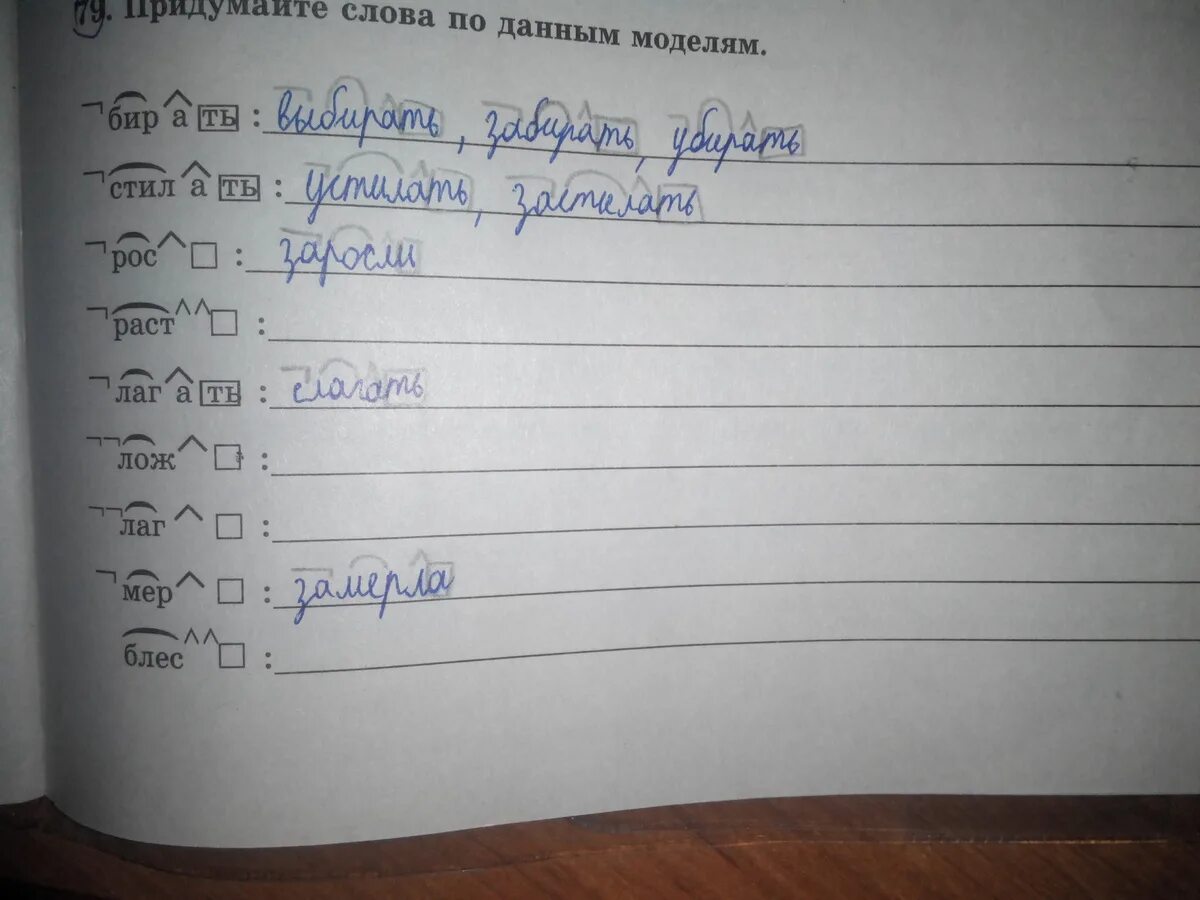 79. Придумайте слова по данным моделям.
бир а ть : выбирать, забирать, убирать
стил а ть : устилать, застилать
рос : заросли
раст :
лаг а ть : слагать
лож :
лаг :
мер : замерла
блес :